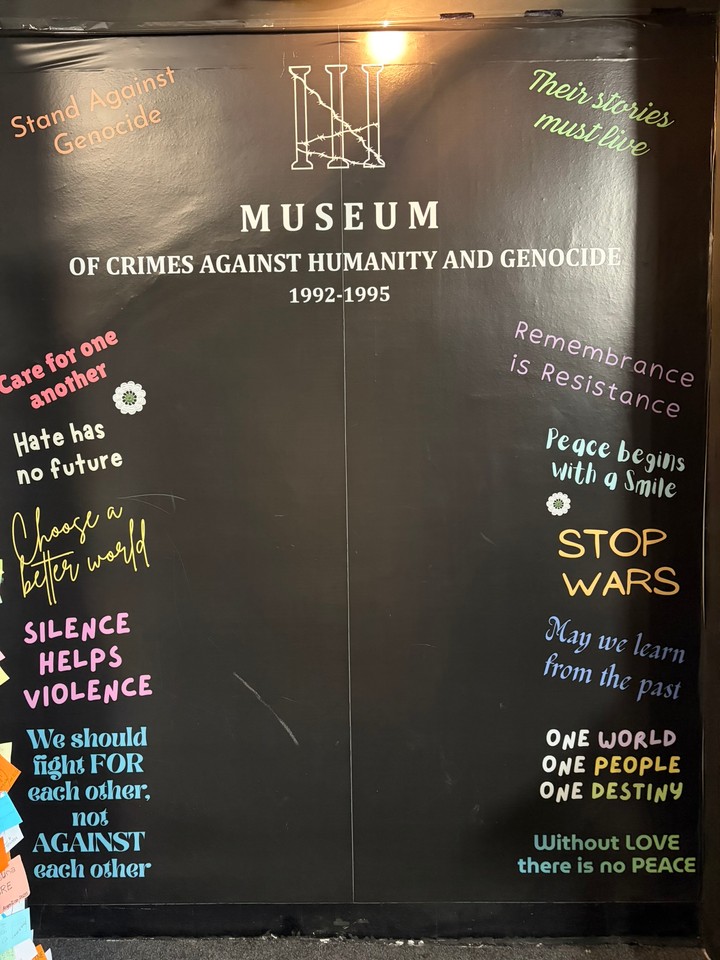 Stand Against
Genocide
Their stories
must live
MUSEUM
OF CRIMES AGAINST HUMANITY AND GENOCIDE
1992-1995
Care for one
another
Hate has
no future
Choose a
better world
SILENCE
HELPS
VIOLENCE
We should
fight FOR
each other,
not
AGAINST
each other
Remembrance
is Resistance
Peace begins
with a Smile
STOP
WARS
May we learn
from the past
ONE WORLD
ONE PEOPLE
ONE DESTINY
Without LOVE
there is no PEACE